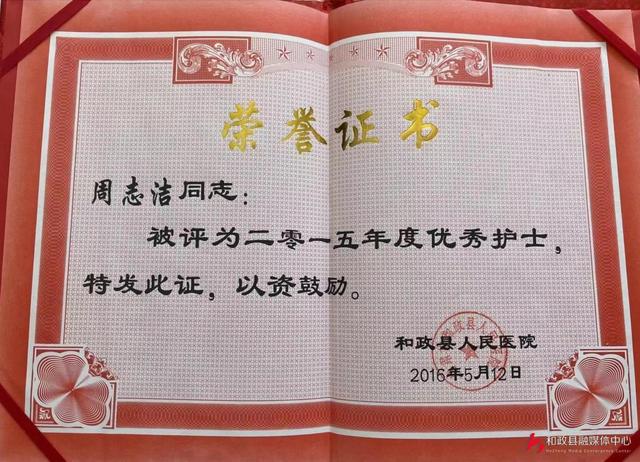 荣誉证书
周志洁同志：
被评为二零一五年度优秀护士，
特发此证，以资鼓励。
和政县人民医院
2016年5月12日
和政县融媒体中心
HeZheng Media Convergence Center